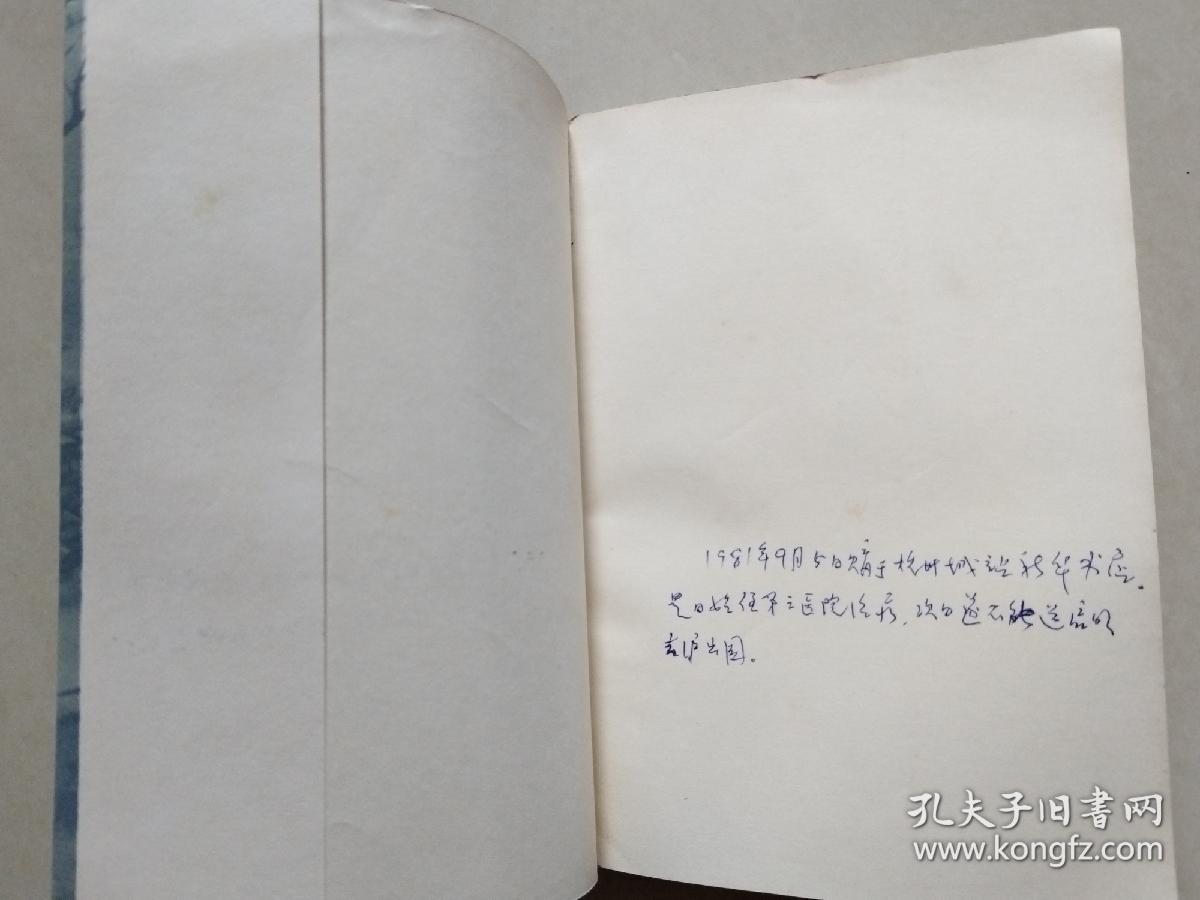 1981年9月5日购于杭州城站新华书店。
是日始住第三医院治疗，次日遂不能送信明
去沪出国。
孔夫子旧书网
www.kongfz.com